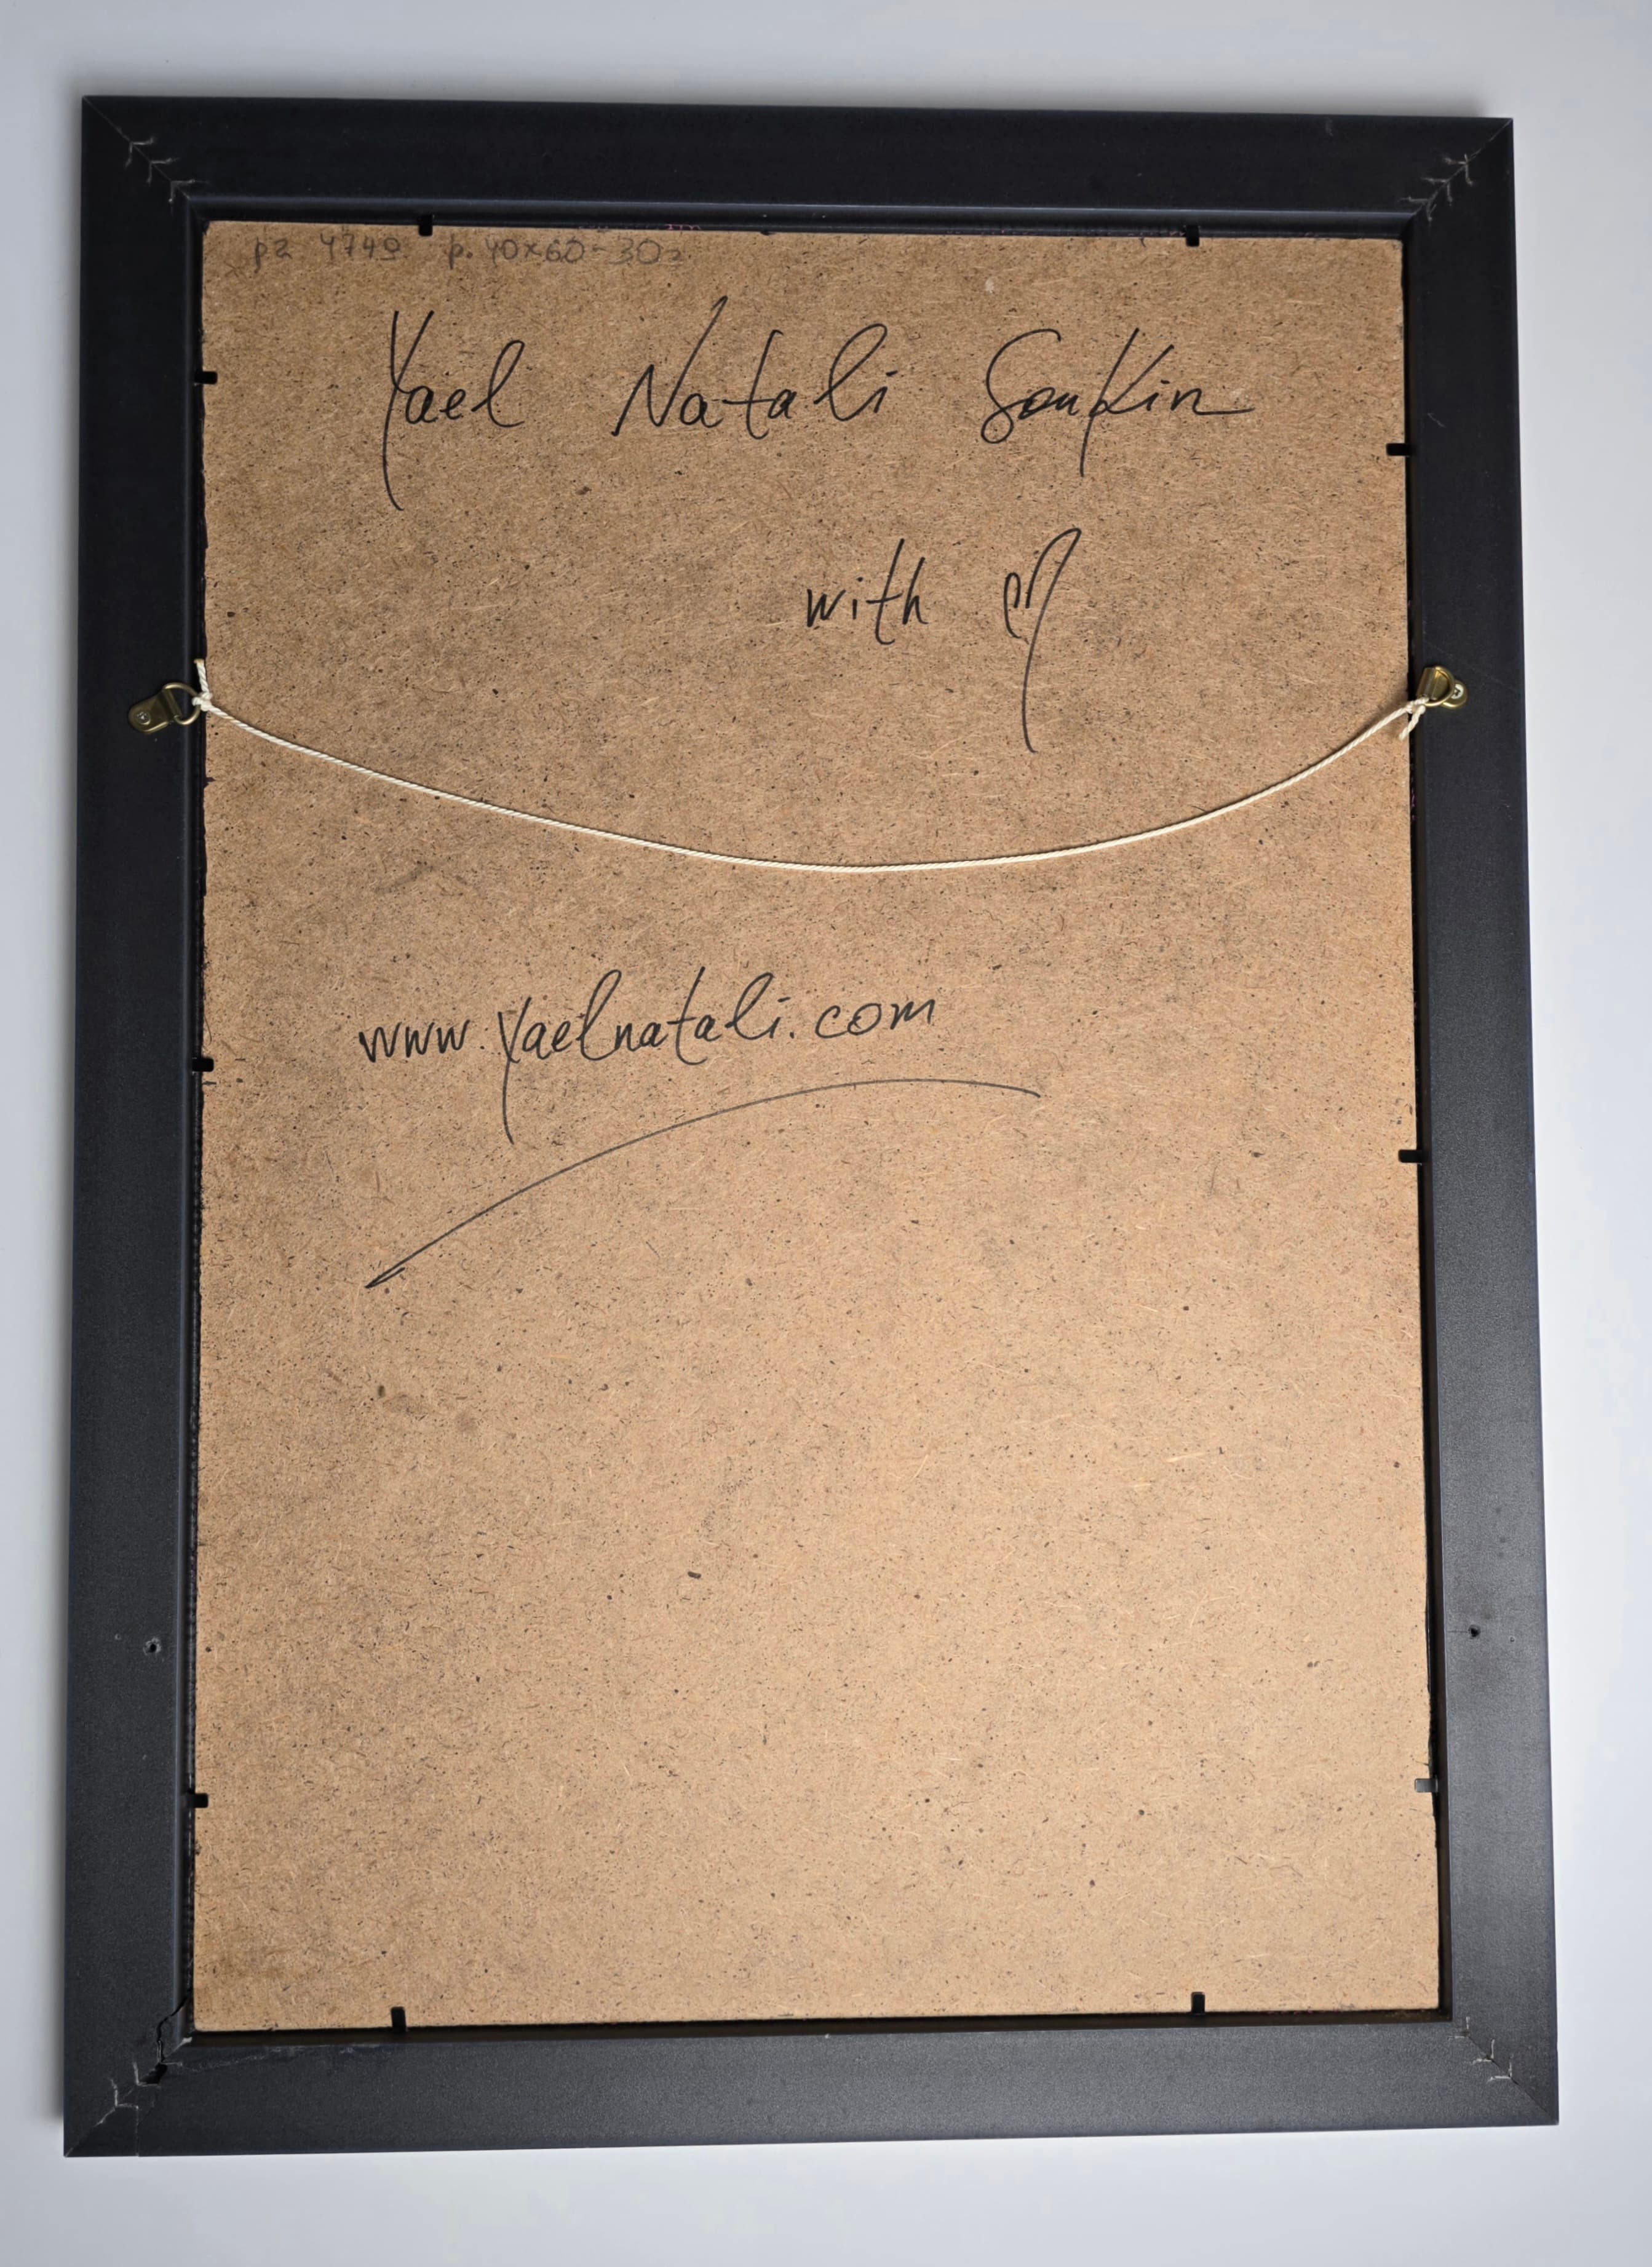 pz 4749 p. 40x60-30z
Yael Natali Sonkin
with
www.yaelnatali.com